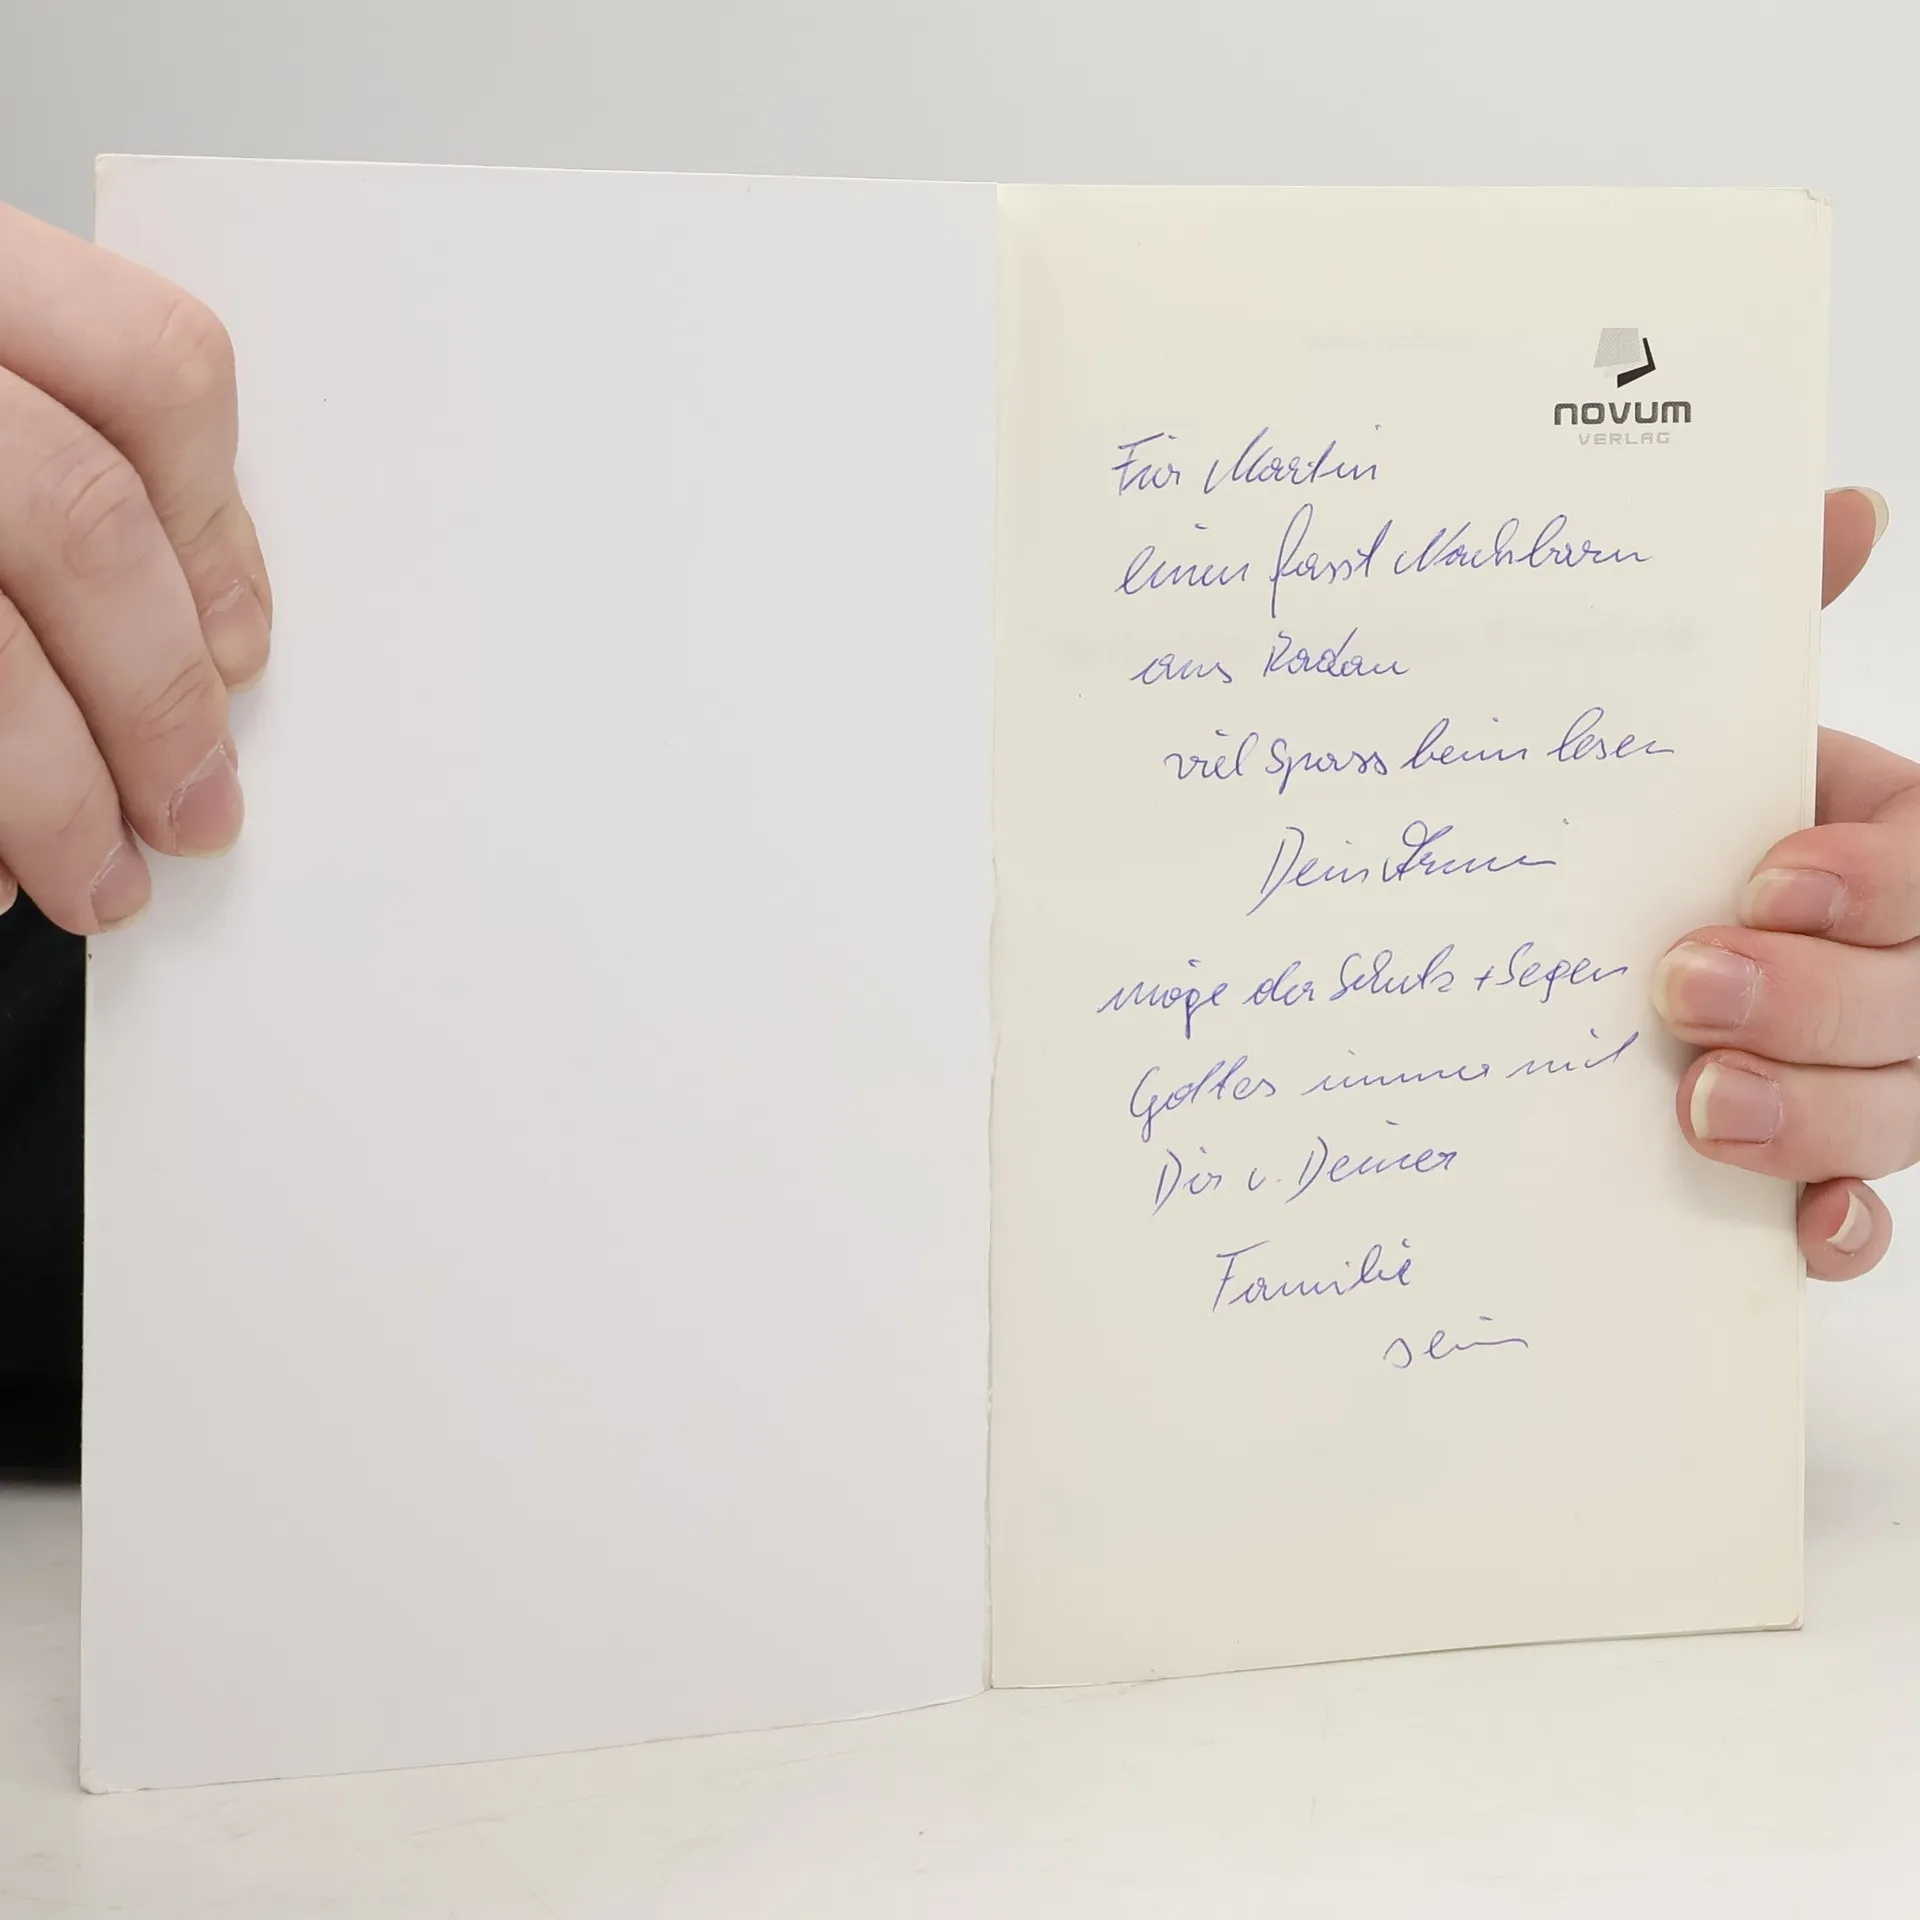 novum
VERLAG
Für Martin
einen fasst Nachbarn
aus Radau
viel Spass beim lesen
Dein Armin
möge der Schutz + Segen
Gottes immer mit
Dir u. Deiner
Familie
sein